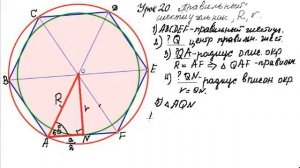 Урок 20. Правильный
шестиугольник, R, r.
1) ABCDEF - правильный шестиуг.
2) ? Q центр правильн. шест
3) ? QA - радиус опис. окр
R = AF ⇒ △QAF - правильн
4) ? QN - радиус вписан окр
r = QN.
5) △AQN
C
D
B
E
R
r
A
N
F
a
2